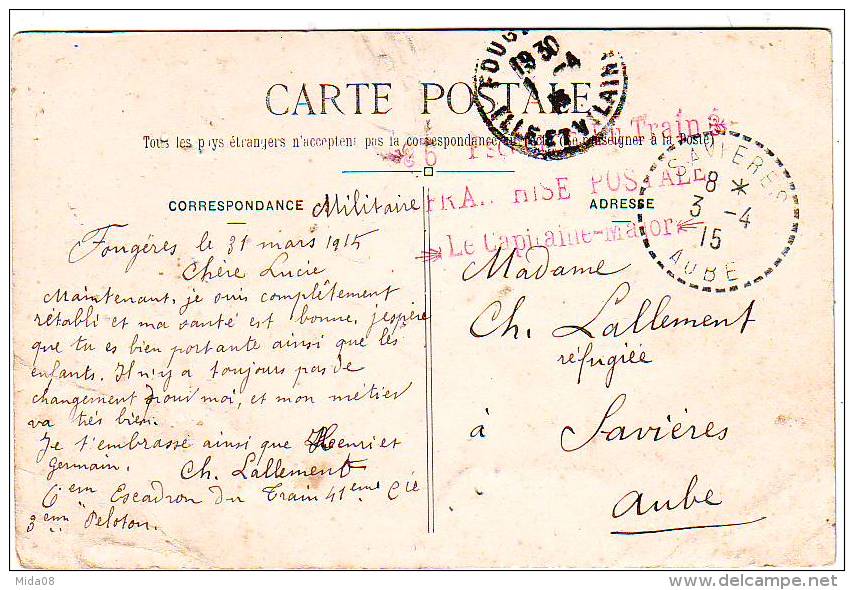 CARTE POSTALE
Tous les pays étrangers n'acceptent pas la correspondance au recto (Se renseigner à la Poste)
FOUG
19 30
1 -4
15
ILLE-ET-VILAINE
6 Train
FRA HISE POSTALE
Le Capitaine-Major
SAVIERES
8 *
3 -4
15
AUBE
CORRESPONDANCE Militaire
Fougères le 31 mars 1915
Chère Lucie
Maintenant, je suis complêtement
rétabli et ma santé est bonne, j'espère
que tu es bien portante ainsi que les
enfants. Il n'y a toujours pas de
changement pour moi, et mon métier
va très bien.
Je t'embrasse ainsi que Henri et
Germain.
Ch. Lallement
6em Escadron du Train 41eme Cie
3em Peloton.
ADRESSE
Madame
Ch. Lallement
réfugiée
à Savières
Aube
Mida08
delcampe.net